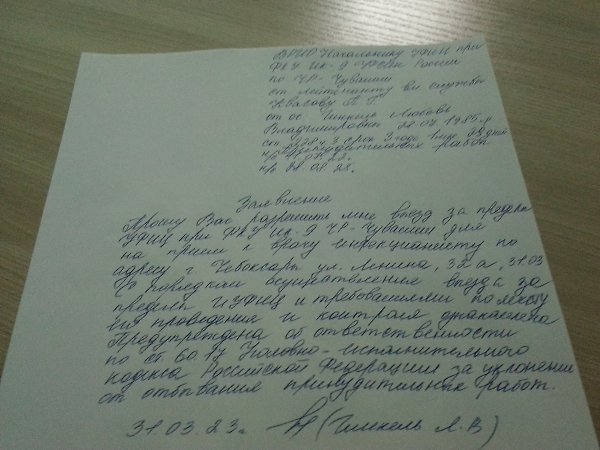 ВРИО Начальнику УФИЦ при
ФКУ ИК-9 УФСИН России
по ЧР-Чувашии
ст. лейтенанту вн службы
от ос. Любовь
Владимировны 28.07.1985 г
ст. 228 ч 3 срок 3 года 1 мес 28 дней
принудительных работ
Заявление
Прошу Вас разрешить мне выезд за пределы
УФИЦ при ФКУ ИК-9 ЧР-Чувашии для
на прием к врачу инфекционисту по
адресу г. Чебоксары ул. Ленина, 32 а, 31.03
С порядком осуществления выезда за
пределы УФИЦ и требованиями по месту
его проведения и контроля ознакомлена
Предупреждена об ответственности
по ст. 60.17 Уголовно-исполнительного
кодекса Российской Федерации за уклонении
от отбывания принудительных работ.
31.03.23г. (Л.В)